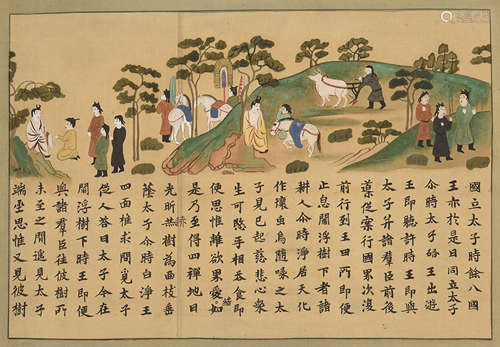 國立太子時餘八國
王亦於是日同立太子
尒時太子啓王出遊
王即聽許時王即與
太子并諸羣臣前後
導從案行國界次復
前行到王田所即便
止息閻浮樹下看諸
耕人尒時淨居天化
作壤虫烏隨啄之太
子見已起慈悲心衆
生可愍手相吞食即
便思惟離欲界愛如
是乃至得四禪地日
光昕赫樹為曲枝
蔭太子尒時白淨王
四面推求問覓太子
從人答曰太子今在
閻浮樹下時王即便
與諸羣臣往彼樹所
未至之間遙見太子
端坐思惟又見彼樹